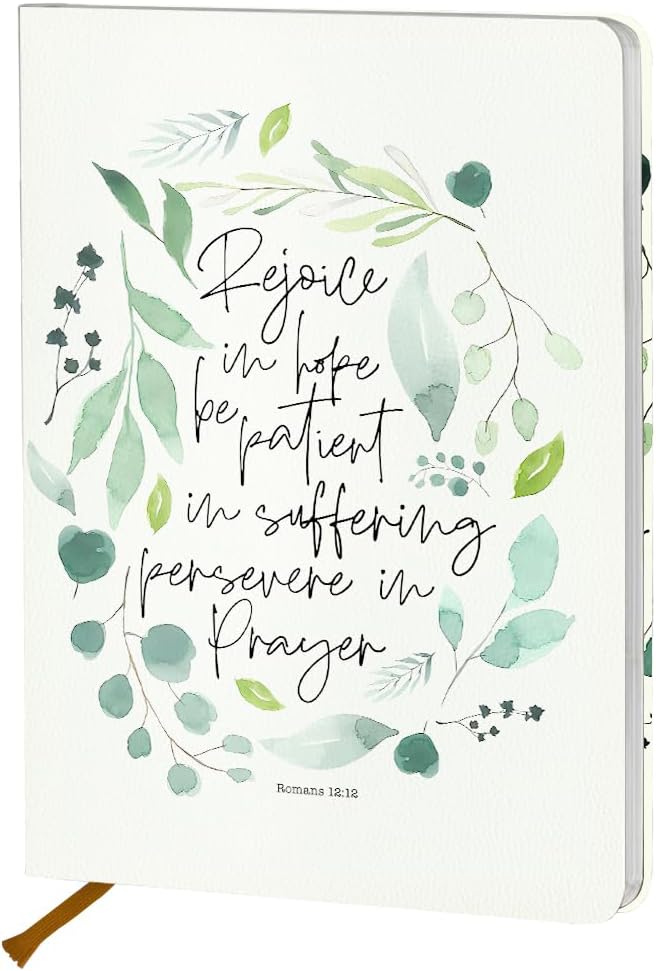 Rejoice
in hope
be patient
in suffering
persevere in
Prayer
Romans 12:12